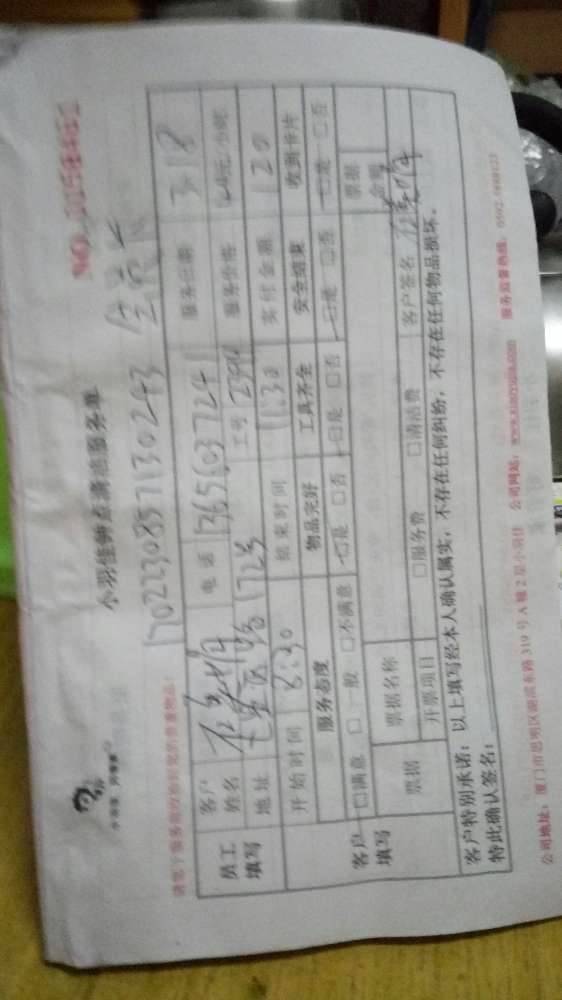 小羽佳钟点清洁服务单
1702230857130243 会员卡
请您于服务前收拾好您的贵重物品!
员工填写 客户姓名 电话 13656037241 服务日期 3.18
地址 172号 工号 服务价格 元/小时
开始时间 8:30 结束时间 11:30 实付金额 120
客户填写 服务态度 物品完好 工具齐全 安全结束 收到卡片
□满意 □一般 □不满意 □是 □否 □是 □否 □是 □否 □是 □否
票据 票据名称 票据金额
开票项目 □服务费 □清洁费 客户签名
客户特别承诺:以上填写经本人确认属实,不存在任何纠纷,不存在任何物品损坏。
特此确认签名:
公司地址:厦门市思明区湖滨东路 319 号 A 幢 2 层小羽佳 公司网站:www.xiaoyujia.com 服务监督热线: